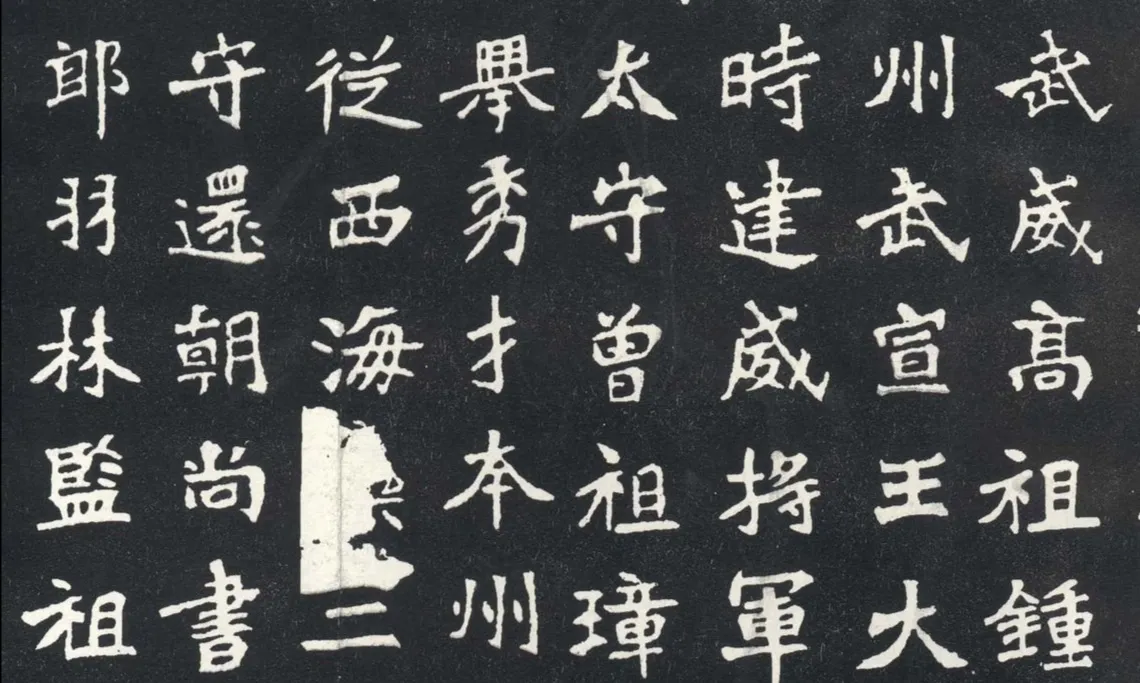 武威高祖鍾
州武宣王大
時建威將軍
太守曾祖璋
舉秀才本州
從西海三
守還朝尚書
郎羽林監祖